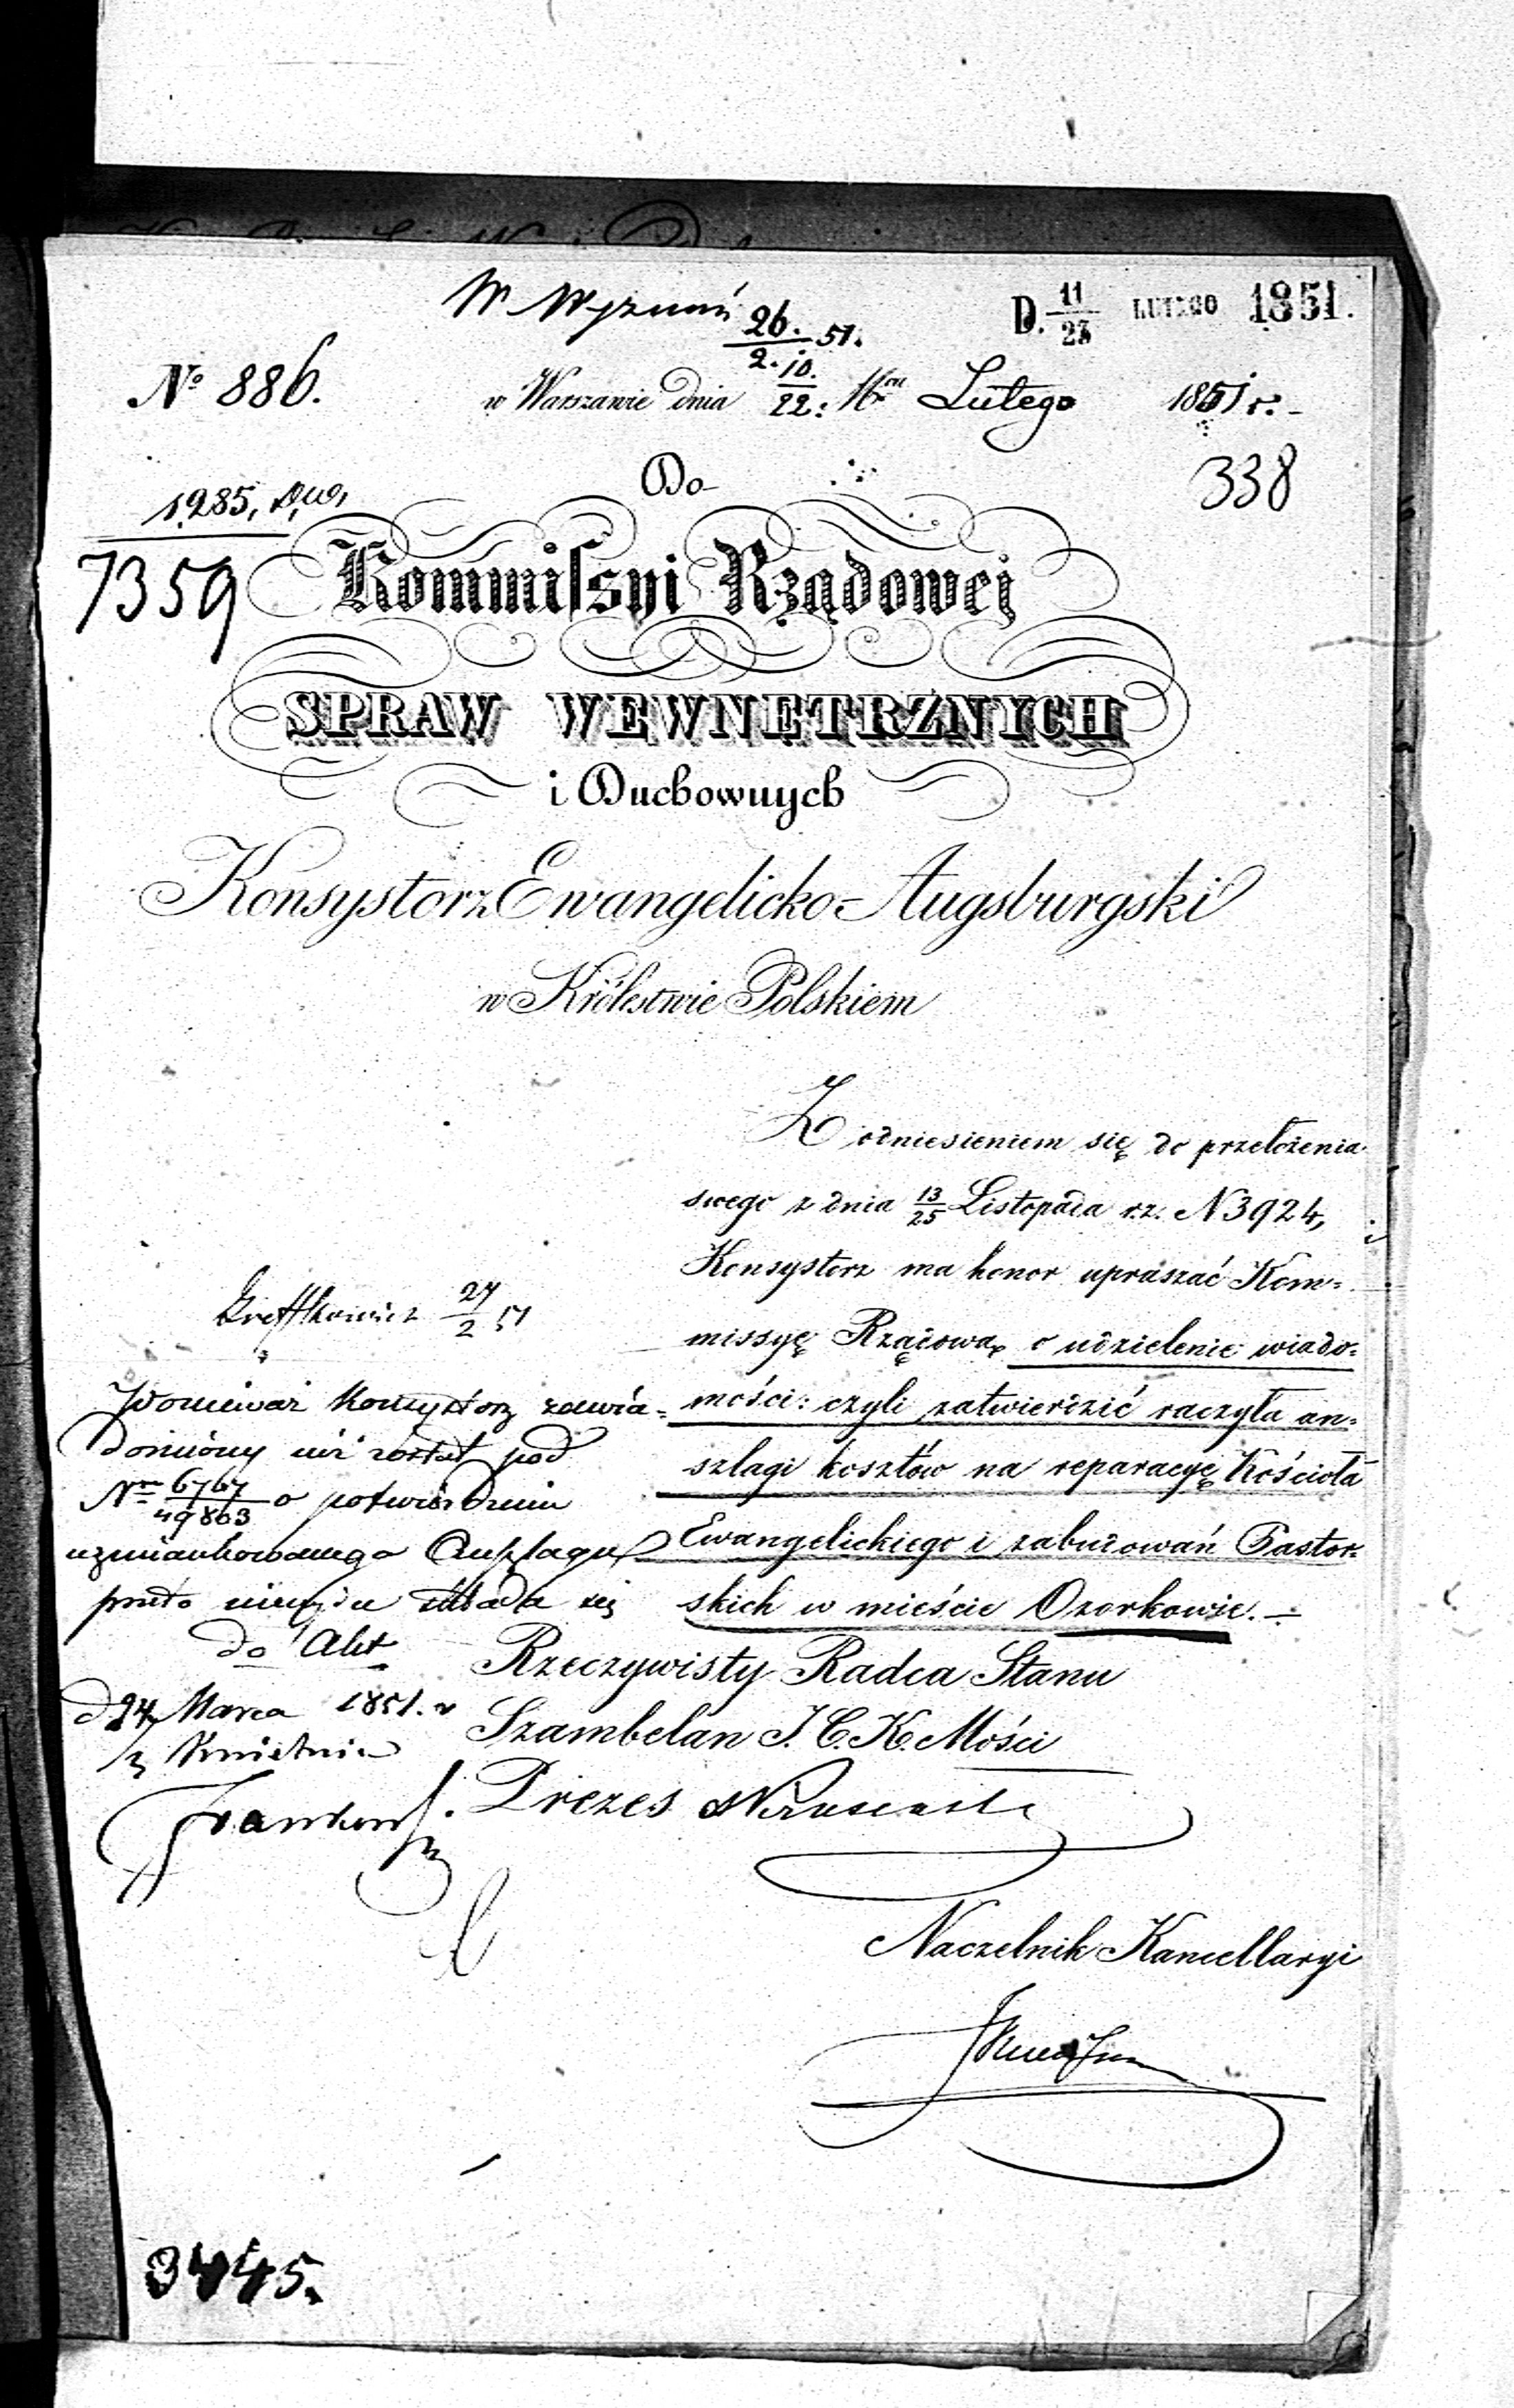 W Wyznań
26./2. 51.
D. 11/23 LUTEGO 1851.
№ 886.
w Warszawie dnia 10./22: Lutego 1851 r.
Do
338
1285,
7359
Kommissyi Rządowej
SPRAW WEWNĘTRZNYCH
i Duchownych
Konsystorz Ewangelicko-Augsburgski
w Królestwie Polskiem
Z odniesieniem się do przełożenia
swego z dnia 13/25 Listopada r.z. N 3924,
Konsystorz ma honor upraszać Kom=
missyę Rządową o udzielenie wiado=
mości: czyli zatwierdzić raczyła an=
szlagi kosztów na reparacyę Kościoła
Ewangelickiego i zabudowań Pastor=
skich w mieście Ozorkowie.
27/2 51
Ponieważ Konsystorz zawia=
domiony już został pod
Nr 6767/49863 o potwierdzeniu
wzmiankowanego Anszlagu
przeto niniejsze składa się
do Akt
d 24 Marca 1851. r
Kwietnia
Rzeczywisty Radca Stanu
Szambelan J. C. K. Mości
Prezes
Naczelnik Kancellaryi
3445.